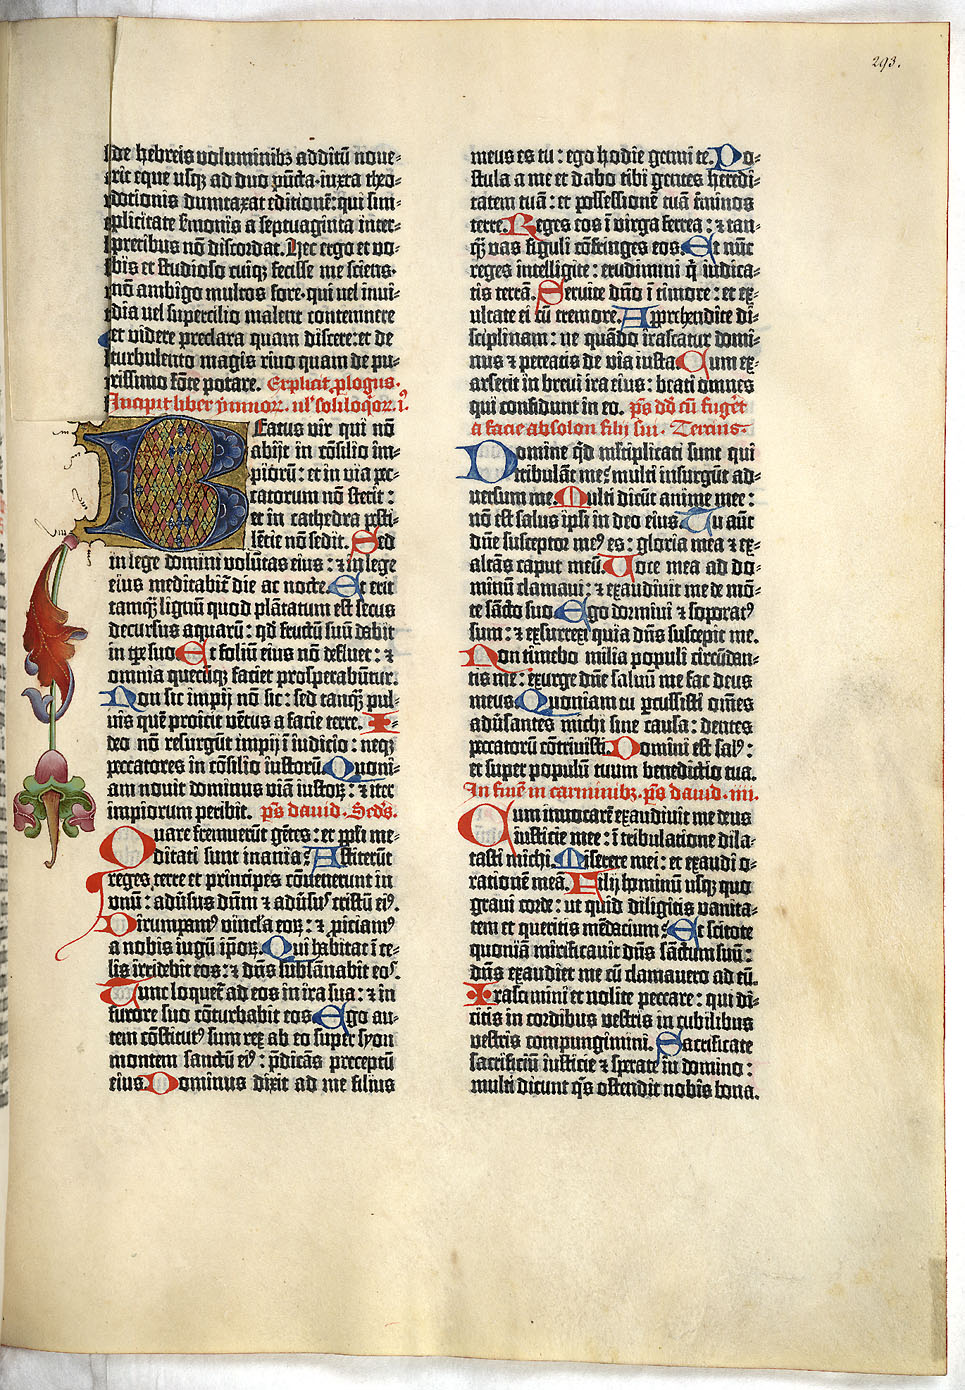 293.
de hebreis voluminibꝫ additū noue-
rit eque usqꝫ ad duo pūcta·iuxta theo-
dotionis dumtaxat editionē: qui sim-
plicitate s̄monis a septuaginta inter-
pretibus nō discordat. Hec ergo et vo-
bis et studioso cuiqꝫ fecisse me sciens·
nō ambigo multos fore·qui vel invi-
dia vel supercilio malent contemnere
et videre preclara quam discere: et de
turbulento magis rivo quam de pu-
rissimo fōte potare. Explicit ꝓlogus.
Incipit liber ymnoꝝ. vl' soliloqioꝝ.
Beatus vir qui nō
abijt in cōsilio im-
pioꝝ: et in via pec-
catorum nō stetit:
et in cathedra pesti-
lētie nō sedit. Sed
in lege domini volūtas eius: ⁊ in lege
eius meditabit' die ac nocte. Et erit
tamqᷓ lignū quod plātatum est secus
decursus aquarū: qd̄ fructū suū dabit
in tp̄e suo Et foliū eius nō defluet: ⁊
omnia quecūqꝫ faciet prosperabūtur.
Non sic impij nō sic: sed tanqᷓ pul-
uis quē proicit vētus a facie terre. I-
deo nō resurgūt impij ī iudicio: neqꝫ
peccatores in cōsilio iustorū. Quoni-
am novit dominus viā iustoꝝ: ⁊ iter
impiorum peribit. p̄s david. Scd̄s.
Quare fremuerūt gētes: et ppl̄i me-
ditati sunt inania: Astiterūt
reges terre et principes cōvenerunt in
unū: adūsus dn̄m ⁊ adūsus cristū eiꝰ.
Dirumpamꝰ vincla eoꝝ: ⁊ ꝓiciamꝰ
a nobis iugū ip̄oꝝ. Qui habitat ī ce-
lis irridebit eos: ⁊ dn̄s subsānabit eoˢ.
Tunc loquet' ad eos in ira sua: ⁊ in
furore suo cōturbabit eos Ego au-
tem cōstitutꝰ sum rex ab eo super syon
montem sanctū eiꝰ: p̄dicās preceptū
eius. Dominus dixit ad me filius
meus es tu: ego hodie genui te. Po-
stula a me et dabo tibi gentes heredi-
tatem tuā: et possessionē tuā t̄minos
terre. Reges eos ī virga ferrea: ⁊ tan-
qᷓ vas figuli cōfringes eos. Et nūc
reges intelligite: erudimini qi iudica-
tis terrā. Servite dn̄o ī timore: et ex-
ultate ei cū tremore. Apprehendite di-
sciplinam: ne quādo irascatur domi-
nus ⁊ pereatis de via iusta Cum ex-
arserit in brevi ira eius: beati omnes
qui confidunt in eo. p̄s dd̄ cū fugēt
a facie absolon filii sui. Tercius.
Domine qd̄ ml̄tiplicati sunt qui
tribulāt me: multi insurgūt ad-
versum me. Multi dicūt anime mee:
nō est salus ipsi in deo eius Tu aūt
dn̄e susceptor meꝰ es: gloria mea ⁊ ex-
altās caput meū. Voce mea ad do-
minū clamaui: ⁊ exaudiuit me de mō-
te sācto suo Ego dormivi ⁊ soporatꝰ
sum: ⁊ exsurrexi quia dn̄s suscepit me.
Non timebo milia populi circūdan-
tis me: exurge dn̄e saluū me fac deus
meus Quoniam tu ꝑcussisti om̄es
adūsantes michi sine causa: dentes
peccatorū cōtrivisti. Domini est salꝰ:
et super populū tuum benedictio tua.
In finē in carminibꝫ. p̄s david. iiii.
Cum invocarē exaudivit me deus
iusticie mee: ī tribulatione dila-
tasti michi. Miserere mei: et exaudi o-
rationē meā. Filij hominū usqꝫ quo
gravi corde: ut quid diligitis vanita-
tem et queritis mēdacium: Et scitote
quoniā mirificavit dn̄s sāctum suū:
dn̄s exaudiet me cū clamavero ad eū.
Irascimini et nolite peccare: qui di-
citis in cordibus vestris in cubilibus
vestris compungimini. Sacrificate
sacrificiū iusticie ⁊ sperate in domino:
multi dicunt qͥs ostendit nobis bona.